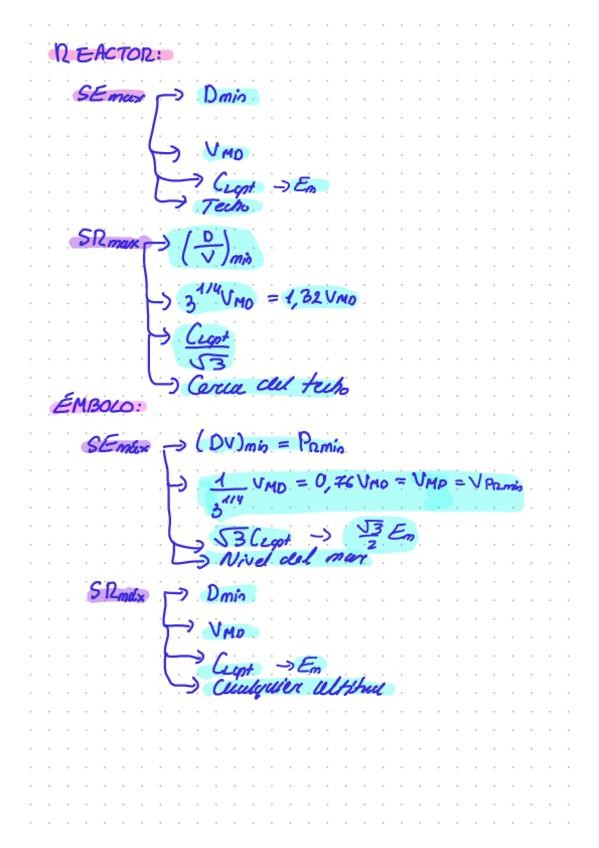 REACTOR:
SEmax → Dmin
→ VMD
→ CLopt → Em
→ Techo
SRmax → (D/V)min
→ 3^1/4 VMD = 1,32 VMD
→ CLopt/√3
→ Cerca del techo
ÉMBOLO:
SEmáx → (DV)min = PRmin
→ 1/3^1/4 VMD = 0,76 VMD = VMP = VPRmin
→ √3 CLopt → √3/2 Em
→ Nivel del mar
SRmáx → Dmin
→ VMD
→ CLopt → Em
→ Cualquier altitud